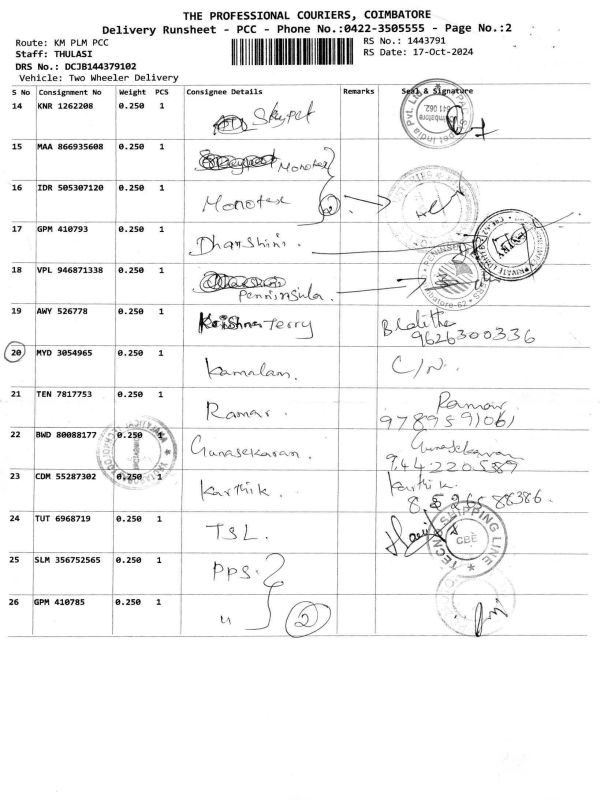 THE PROFESSIONAL COURIERS, COIMBATORE
Delivery Runsheet - PCC - Phone No.:0422-3505555 - Page No.:2
Route: KM PLM PCC
RS No.: 1443791
Staff: THULASI
RS Date: 17-Oct-2024
DRS No.: DCJB144379102
Vehicle: Two Wheeler Delivery
S No Consignment No Weight PCS Consignee Details Remarks Seal & Signature
14 KNR 1262208 0.250 1 Skypet
15 MAA 866935608 0.250 1 Monotex
16 IDR 505307120 0.250 1 Monotex
17 GPM 410793 0.250 1 Dharshini.
18 VPL 946871338 0.250 1 Penninsula.
19 AWY 526778 0.250 1 Terry
9626300336
20 MYD 3054965 0.250 1 Kamalam. C/N.
21 TEN 7817753 0.250 1 Ramar. Ramar
9789591061
22 BWD 80088177 0.250 1 Gunasekaran. Gunasekaran
23 CDM 55287302 0.250 1 Karthik. Karthik.
24 TUT 6968719 0.250 1 TSL.
TECNO SHIPPING LINE
CBE
25 SLM 356752565 0.250 1 PPS.
26 GPM 410785 0.250 1 〃 2